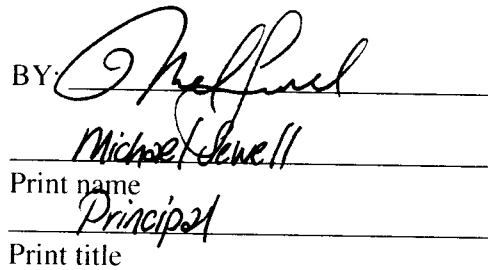 BY:
Michael Sewell
Print name
Principal
Print title